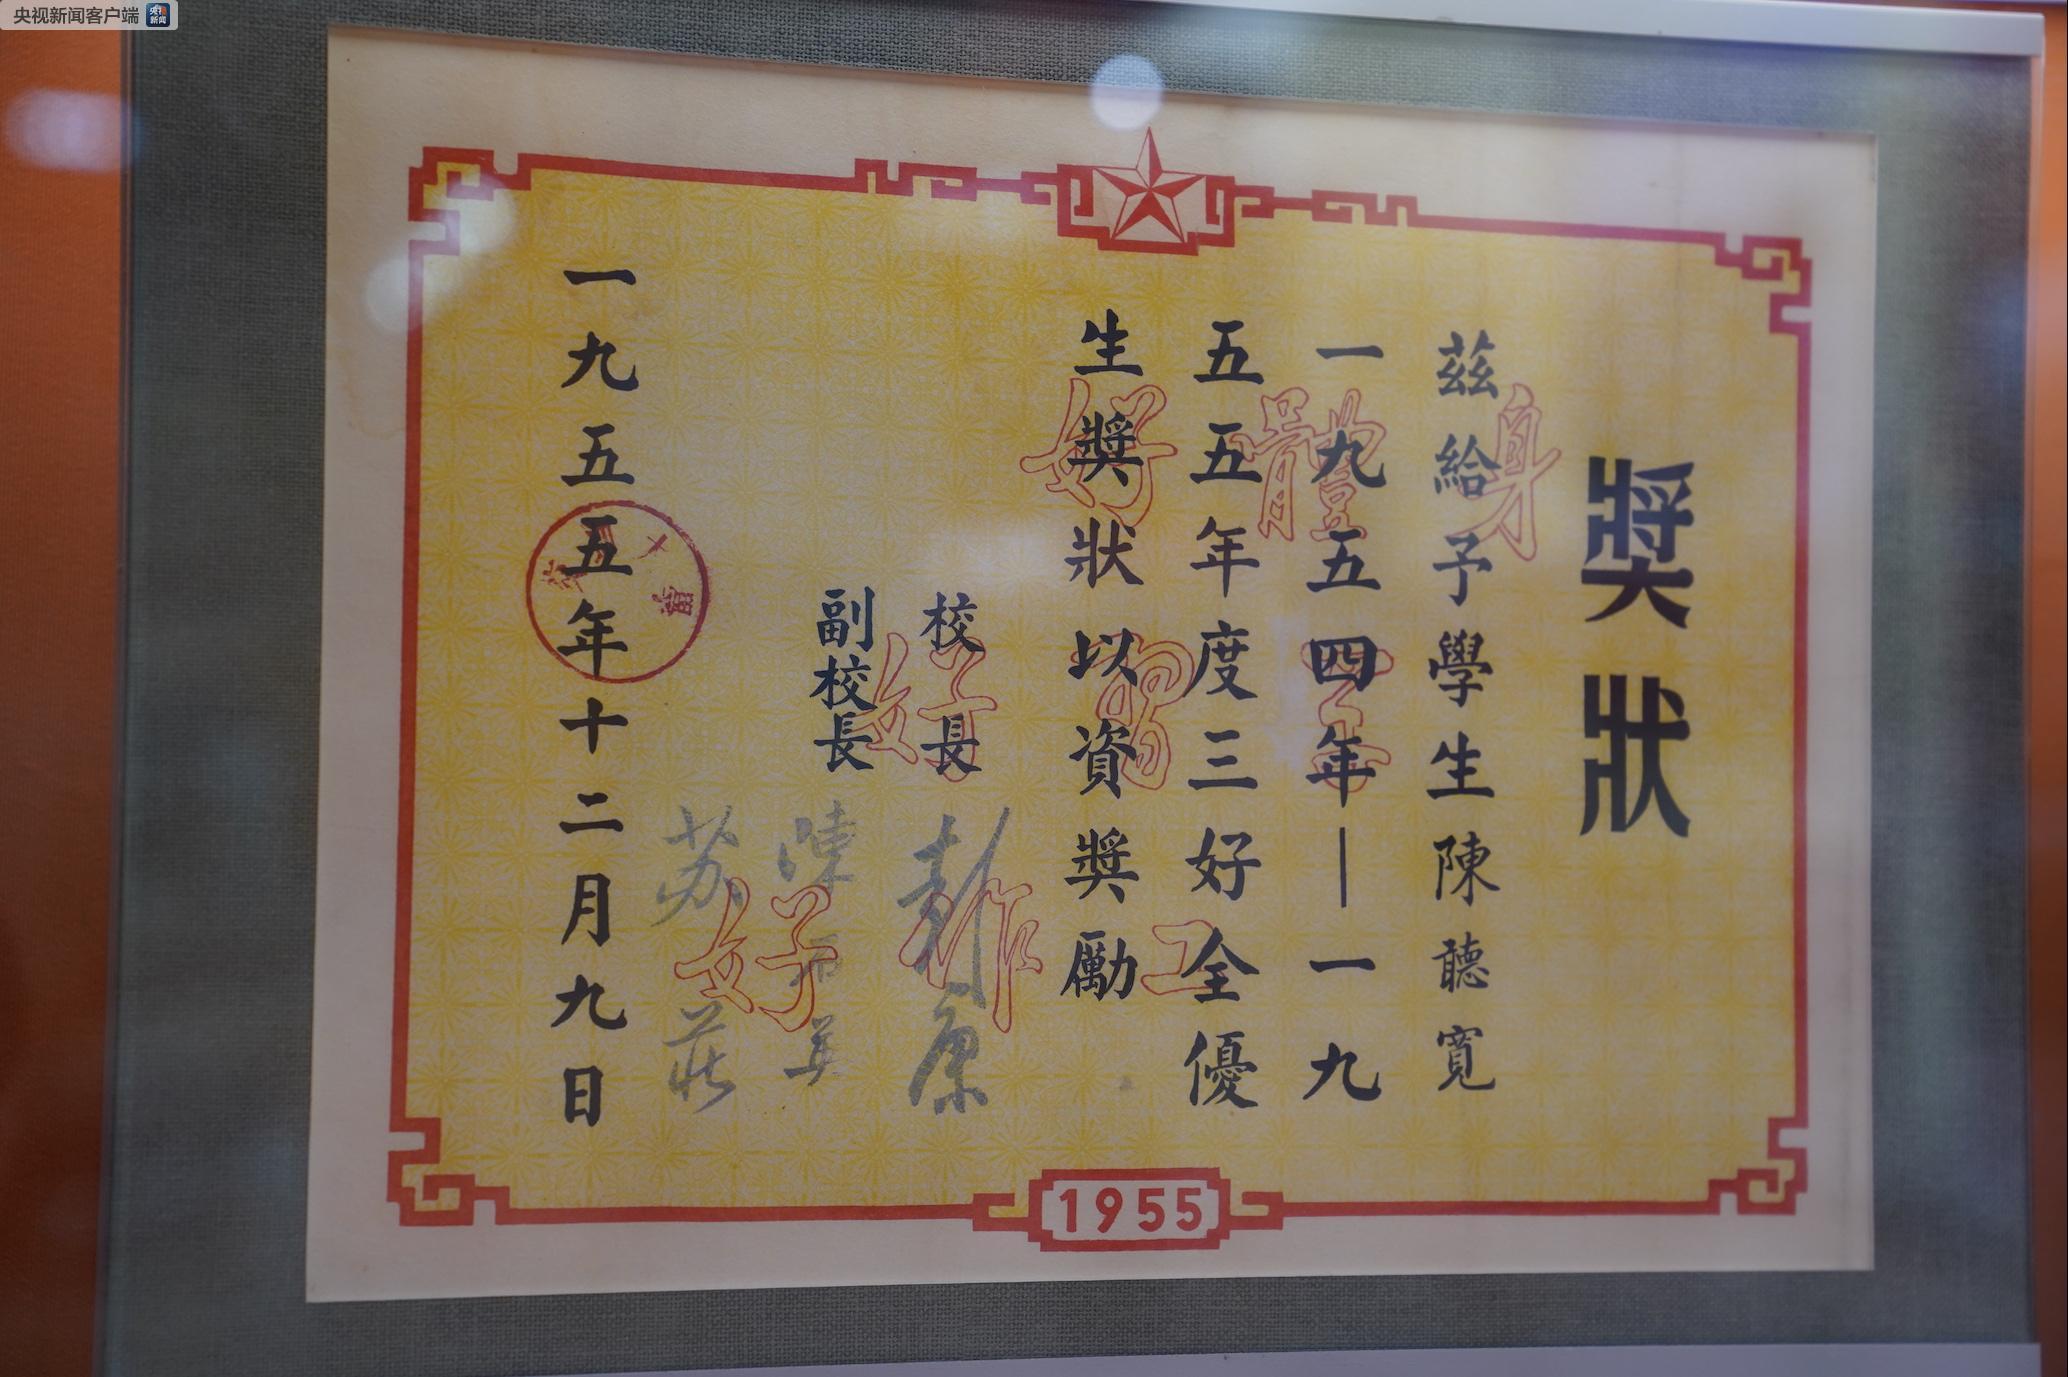 央视新闻客户端
央视
新闻
獎狀
茲給予學生陳聽寬
一九五四年—一九
五五年度三好全優
生獎狀以資獎勵
身體好
學習好
工作好
校長 彭康
副校長 陳吾愚
苏莊
一九五五年十二月九日
1955